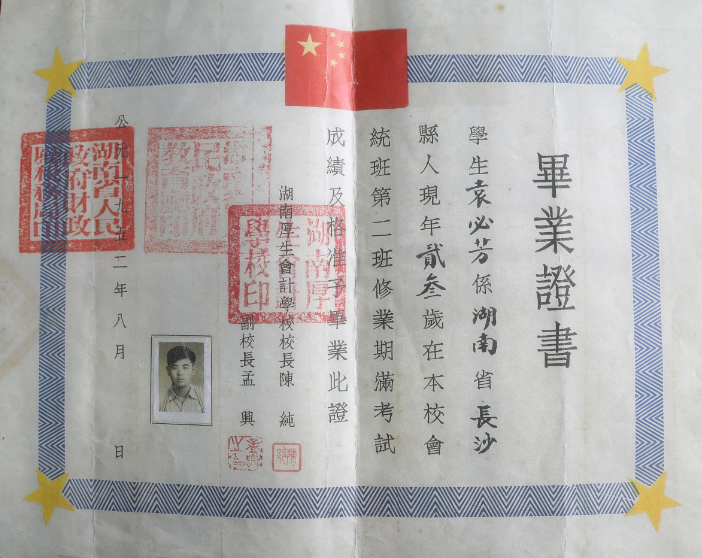 畢業證書
學生袁必芳係湖南省長沙
縣人現年貳叁歲在本校會
統班第二班修業期滿考試
成績及格准予畢業此證
湖南厚生會計學校校長陳純
副校長孟興
公元一九五二年八月 日
湖南厚生會計學校印